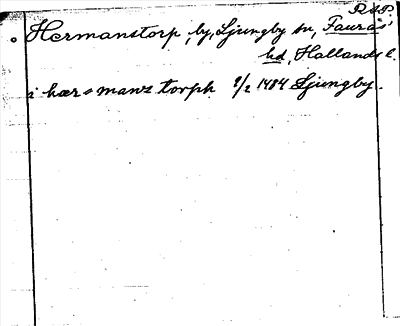 RAP.
Hermanstorp, by, Ljungby sn, Faurås
hd, Hallands l.
i hærmanz torph 9/2 1484 Ljungby.